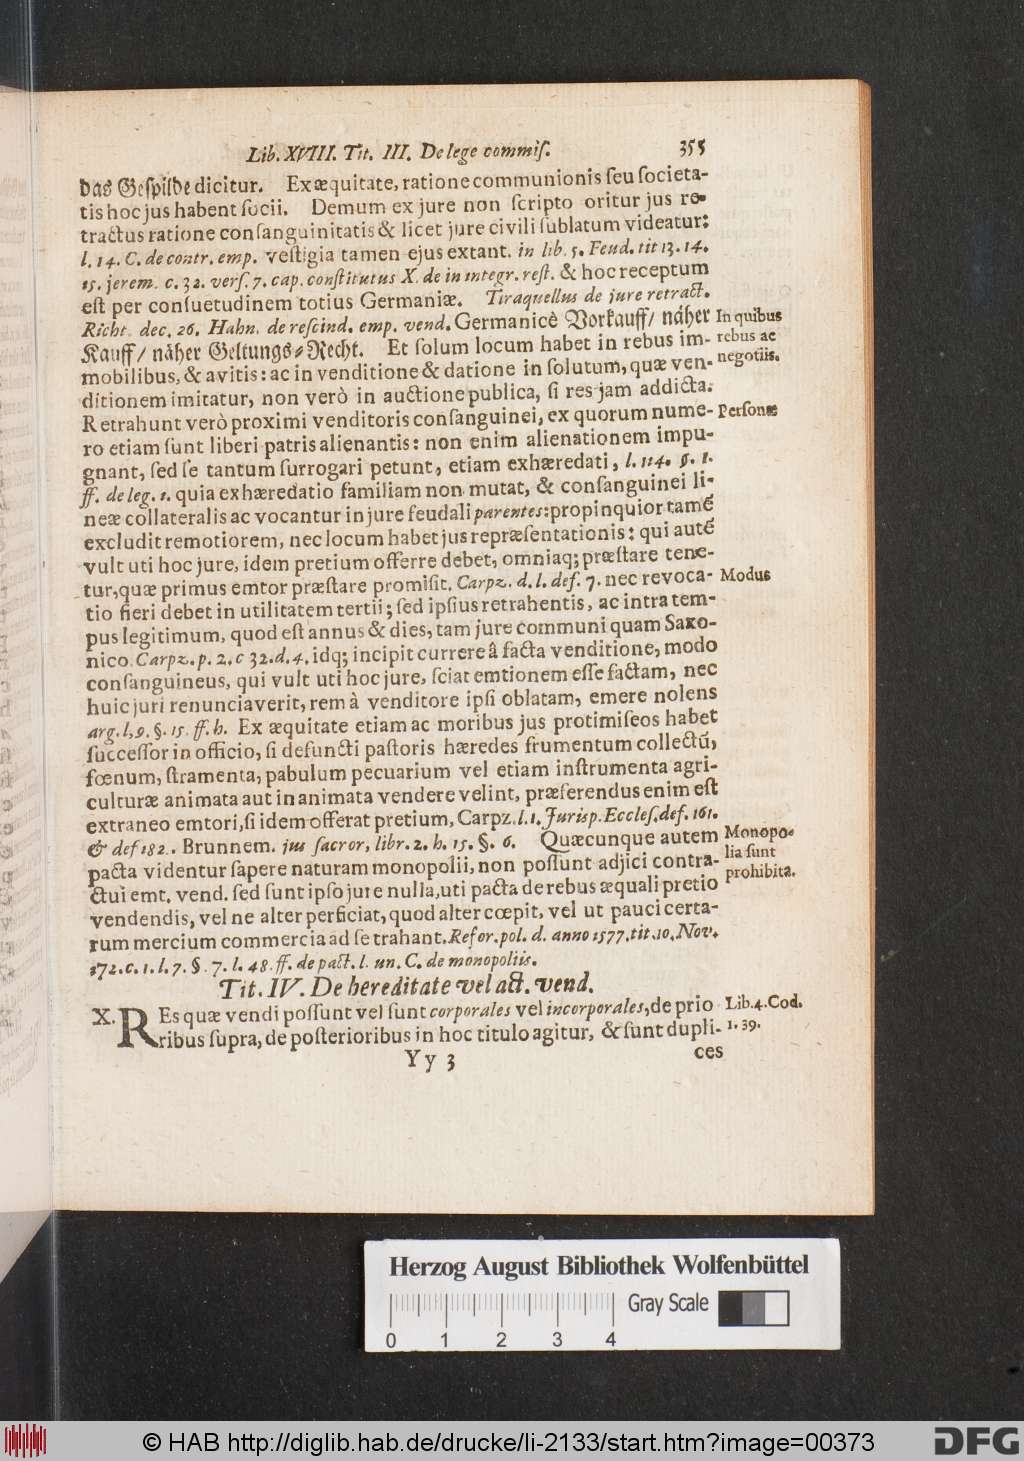 Lib. XVIII. Tit. III. De lege commiſ. 355
das Geſpilde dicitur. Ex æquitate, ratione communionis ſeu ſocieta-
tis hoc jus habent ſocii. Demum ex jure non ſcripto oritur jus re-
tractus ratione conſanguinitatis & licet jure civili ſublatum videatur:
l. 14. C. de contr. emp. veſtigia tamen ejus extant. in lib. 5. Feud. tit 13. 14.
15. jerem. c. 32. verſ. 7. cap. conſtitutus X. de in integr. reſt. & hoc receptum
eſt per conſuetudinem totius Germaniæ. Tiraquellus de jure retract.
Richt. dec. 26. Hahn. de reſcind. emp. vend. Germanicè Vorkauff/ näher
Kauff/ näher Geltungs-Recht. Et ſolum locum habet in rebus im-
mobilibus, & avitis: ac in venditione & datione in ſolutum, quæ ven-
ditionem imitatur, non verò in auctione publica, ſi res jam addicta.
Retrahunt verò proximi venditoris conſanguinei, ex quorum nume-
ro etiam ſunt liberi patris alienantis: non enim alienationem impu-
gnant, ſed ſe tantum ſurrogari petunt, etiam exhæredati, l. 114. §. 1.
ff. de leg. 1. quia exhæredatio familiam non mutat, & conſanguinei li-
neæ collateralis ac vocantur in jure feudali parentes: propinquior tamẽ
excludit remotiorem, nec locum habet jus repræſentationis: qui autẽ
vult uti hoc jure, idem pretium offerre debet, omniaq; præſtare tene-
tur, quæ primus emtor præſtare promiſit. Carpz. d. l. def. 7. nec revoca-
tio fieri debet in utilitatem tertii; ſed ipſius retrahentis, ac intra tem-
pus legitimum, quod eſt annus & dies, tam jure communi quam Saxo-
nico. Carpz. p. 2. c 32. d. 4. idq; incipit currere â facta venditione, modo
conſanguineus, qui vult uti hoc jure, ſciat emtionem eſſe factam, nec
huic juri renunciaverit, rem à venditore ipſi oblatam, emere nolens
arg. l, 9. §. 15. ff. h. Ex æquitate etiam ac moribus jus protimiſeos habet
ſucceſſor in officio, ſi defuncti paſtoris hæredes frumentum collectũ,
fœnum, ſtramenta, pabulum pecuarium vel etiam inſtrumenta agri-
culturæ animata aut inanimata vendere velint, præferendus enim eſt
extraneo emtori, ſi idem offerat pretium, Carpz. l. 1. Jurisp. Eccleſ. def. 161.
& def 182. Brunnem. jus ſacror, libr. 2. h. 15. §. 6. Quæcunque autem
pacta videntur ſapere naturam monopolii, non poſſunt adjici contra-
ctui emt. vend. ſed ſunt ipſo jure nulla, uti pacta de rebus æquali pretio
vendendis, vel ne alter perficiat, quod alter cœpit, vel ut pauci certa-
rum mercium commercia ad ſe trahant. Refor. pol. d. anno 1577. tit. 10. Nov.
172. c. 1. l. 7. §. 7. l. 48. ff. de pact. l. un. C. de monopoliis.
Tit. IV. De hereditate vel act. vend.
X. REs quæ vendi poſſunt vel ſunt corporales vel incorporales, de prio
ribus ſupra, de poſterioribus in hoc titulo agitur, & ſunt dupli-
Yy 3 ces
In quibus
rebus ac
negotiis.
Personæ
Modus
Monopo-
lia ſunt
prohibita.
Lib. 4. Cod.
1. 39.
Herzog August Bibliothek Wolfenbüttel
0 1 2 3 4 Gray Scale
© HAB http://diglib.hab.de/drucke/li-2133/start.htm?image=00373
DFG